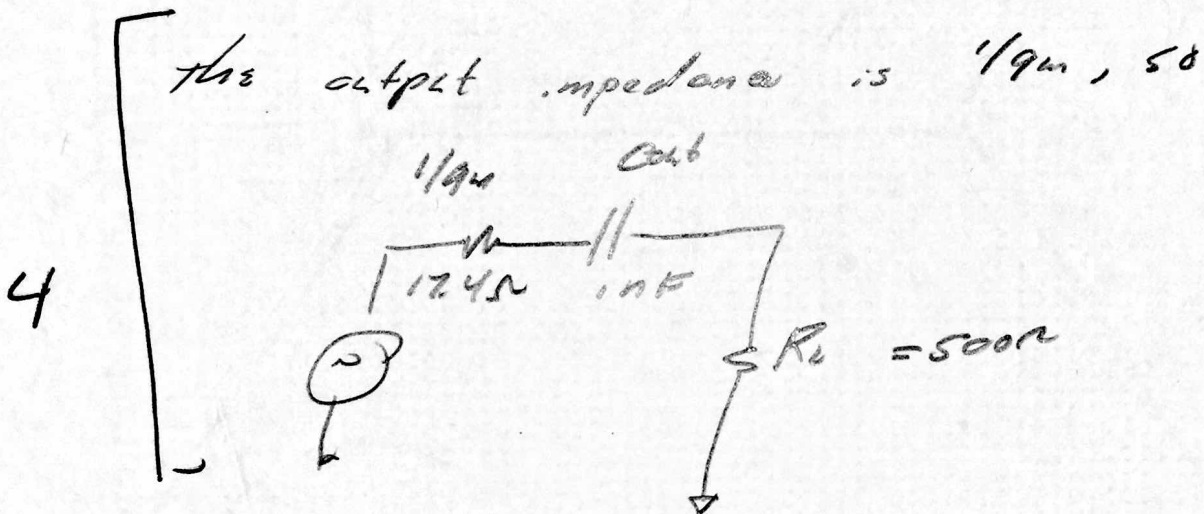 The output impedance is 1/gm, so
1/gm Cout
124Ω .1nF
4
RL = 500Ω